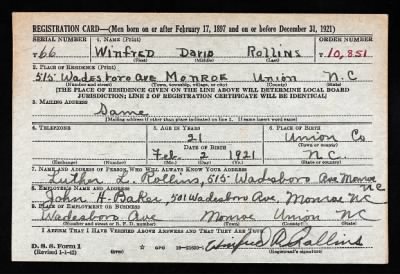 REGISTRATION CARD—(Men born on or after February 17, 1897 and on or before December 31, 1921)
SERIAL NUMBER 1. NAME (Print) ORDER NUMBER
T 66 Winfred David Rollins T 10,851
(First) (Middle) (Last)
2. PLACE OF RESIDENCE (Print)
515 Wadesboro Ave MONROE Union N.C
(Number and street) (Town, township, village, or city) (County) (State)
[THE PLACE OF RESIDENCE GIVEN ON THE LINE ABOVE WILL DETERMINE LOCAL BOARD
JURISDICTION; LINE 2 OF REGISTRATION CERTIFICATE WILL BE IDENTICAL]
3. MAILING ADDRESS
Same
[Mailing address if other than place indicated on line 2. If same insert word same]
4. TELEPHONE 5. AGE IN YEARS 6. PLACE OF BIRTH
21 Union Co
DATE OF BIRTH (Town or county)
Feb. 2 1921 N.C.
(Exchange) (Number) (Mo.) (Day) (Yr.) (State or country)
7. NAME AND ADDRESS OF PERSON WHO WILL ALWAYS KNOW YOUR ADDRESS
Luther L. Rollins, 515 Wadesboro Ave Monroe NC
8. EMPLOYER'S NAME AND ADDRESS
John H. Baker, 501 Wadesboro Ave, Monroe NC
9. PLACE OF EMPLOYMENT OR BUSINESS
Wadesboro Ave Monroe Union NC
(Number and street or R. F. D. number) (Town) (County) (State)
I AFFIRM THAT I HAVE VERIFIED ABOVE ANSWERS AND THAT THEY ARE TRUE.
D. S. S. Form 1
(Revised 1-1-42) GPO Winfred D. Rollins